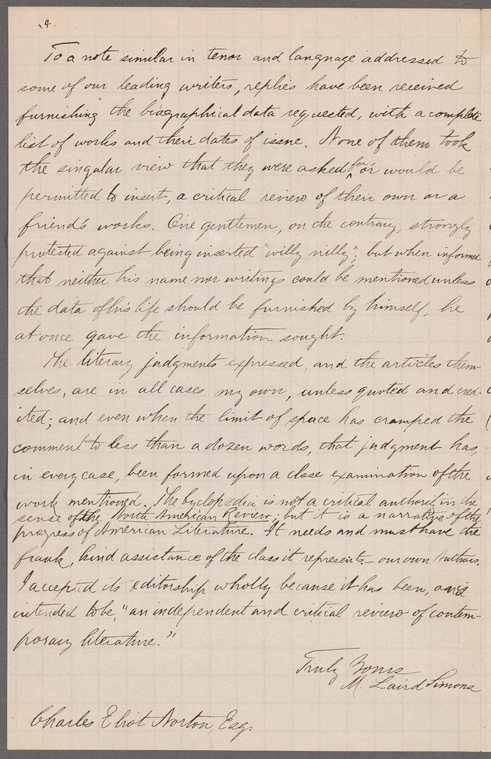 4
To a note similar in tenor and language addressed to
some of our leading writers, replies have been received
furnishing the biographical data requested, with a complete
list of works and their dates of issue. None of them took
the singular view that they were asked for, or would be
permitted to insert, a critical review of their own or a
friend's works. One gentleman, on the contrary, strongly
protested against being inserted "willy nilly"; but when informed
that neither his name nor writings could be mentioned unless
the data of his life should be furnished by himself, he
at once gave the information sought.
The literary judgments expressed, and the articles them-
selves, are in all cases my own, unless quoted and cred-
ited; and even when the limit of space has cramped the
comment to less than a dozen words, that judgment has,
in every case, been formed upon a close examination of the
work mentioned. The Cyclopædia is not a critical authority in the
sense of the North American Review; but it is a narrative of the
progress of American Literature. It needs and must have the
frank, kind assistance of the class it represents – our own Authors.
I accepted its editorship wholly because it has been, and is
intended to be, "an independent and critical review of contem-
porary literature."
Truly Yours
M. Laird Simons
Charles Eliot Norton, Esq.